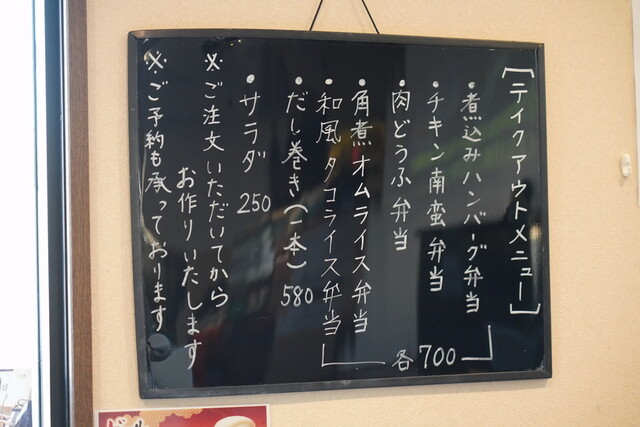 ［テイクアウトメニュー］
・煮込みハンバーグ弁当
・チキン南蛮弁当
・肉どうふ弁当
・角煮オムライス弁当
・和風タコライス弁当
各700
・だし巻き(一本) 580
・サラダ 250
※ご注文いただいてから
お作りいたします
※ご予約も承っております